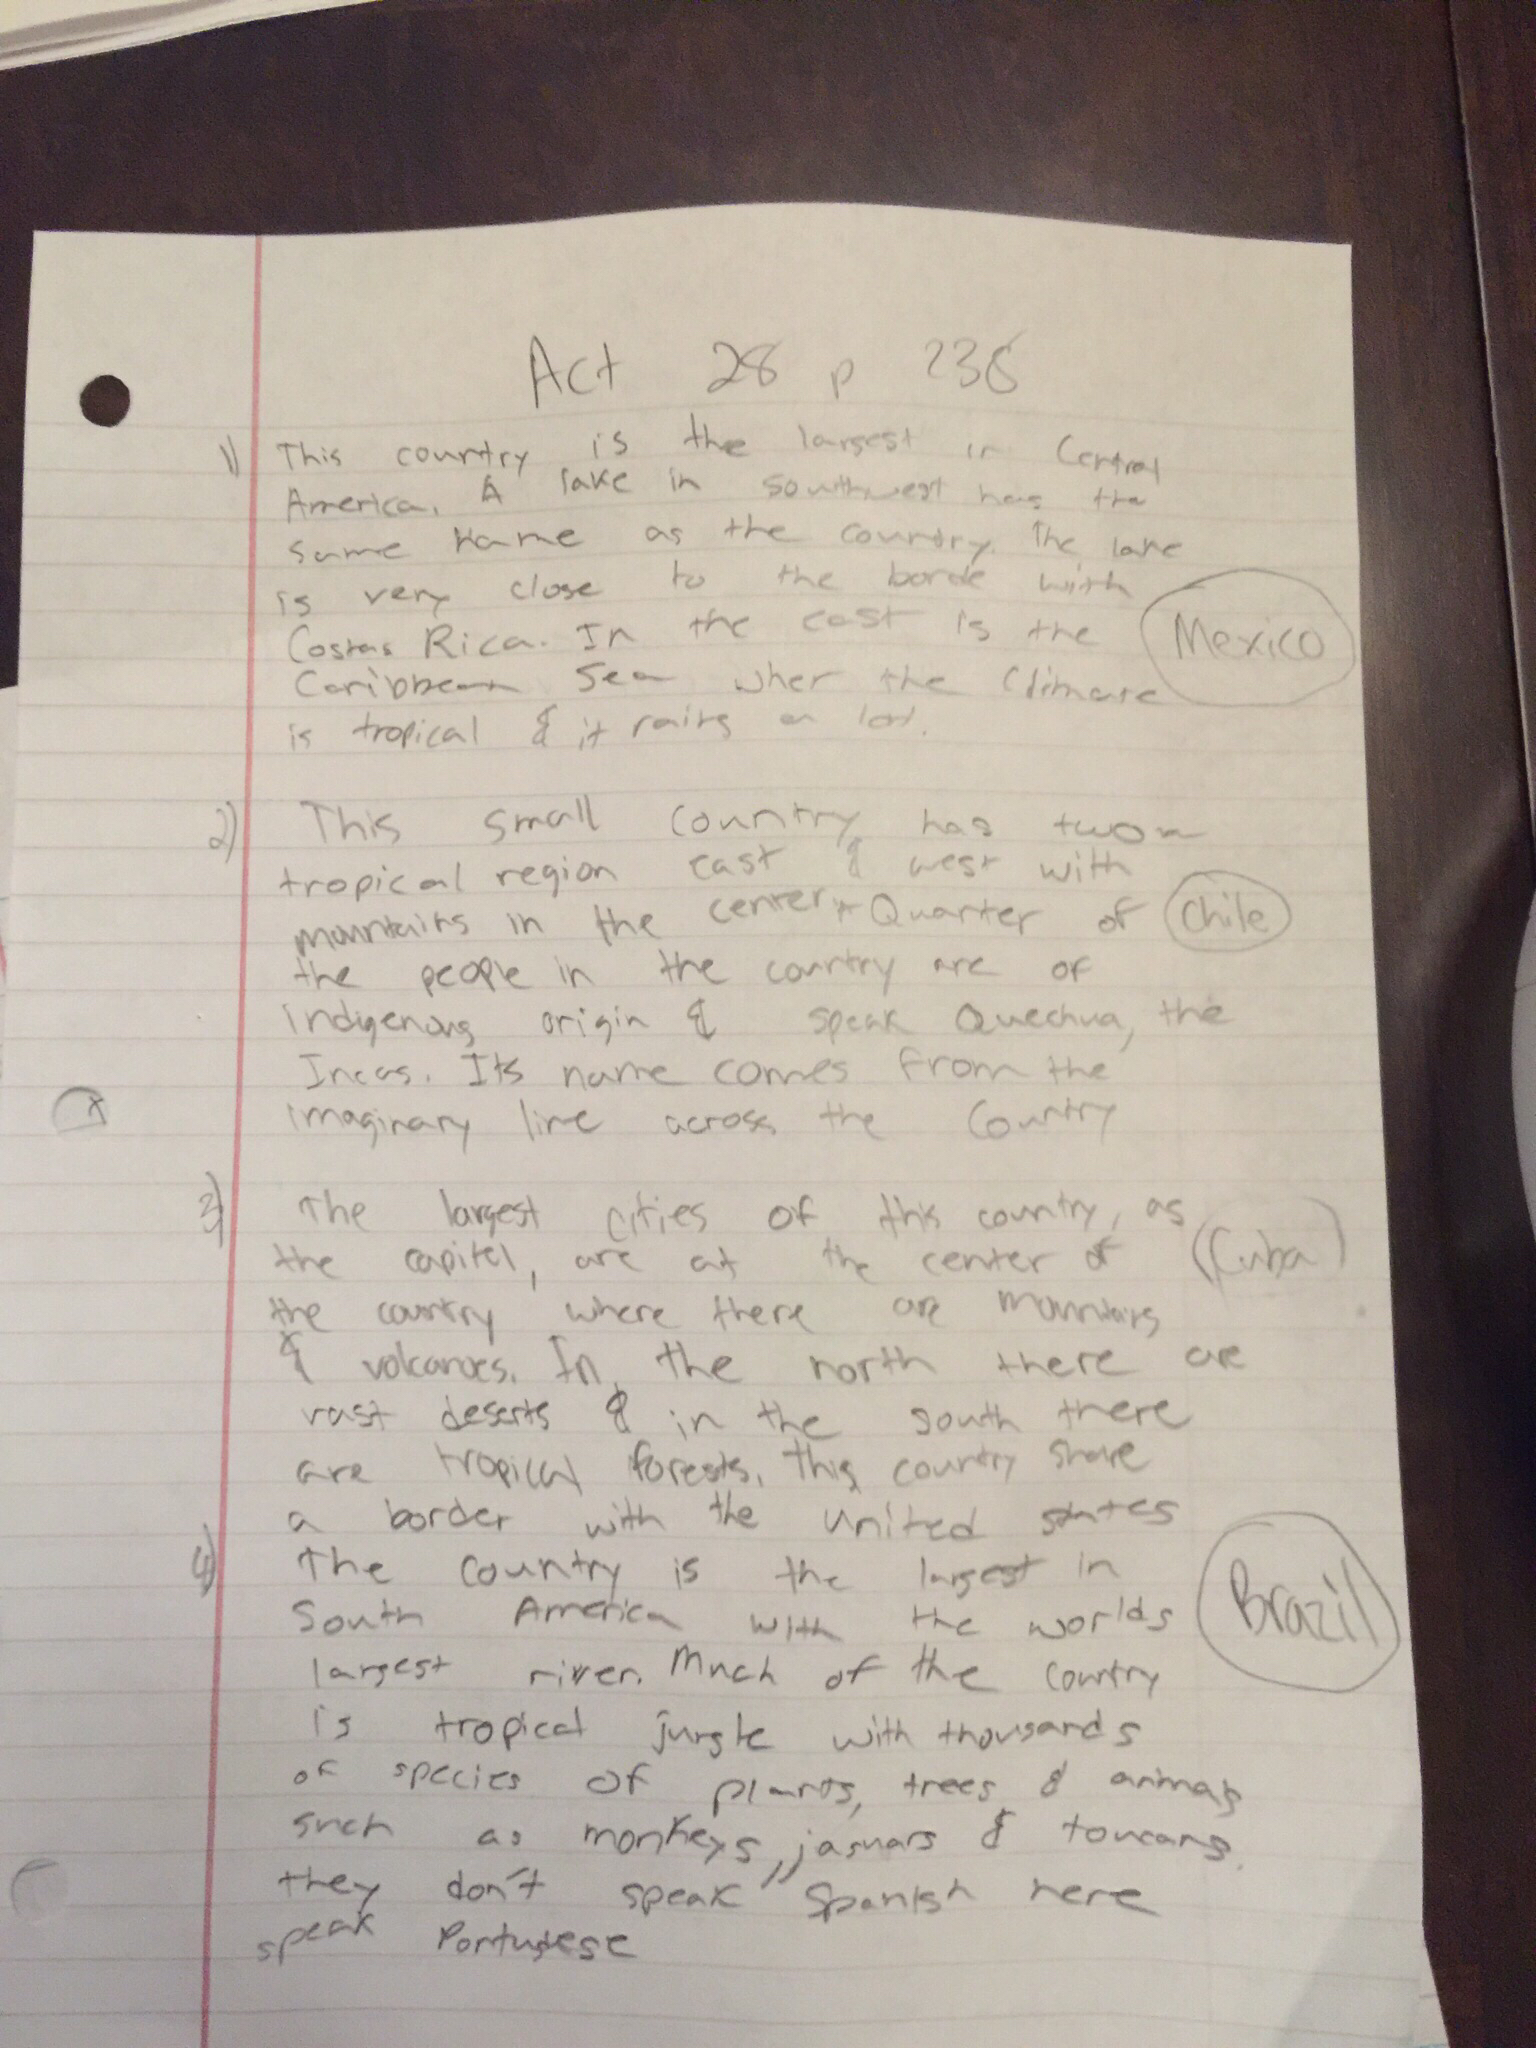 Act 28 p 236
1) This country is the largest in Central
America. A lake in southwest has the
same name as the country. The lake
is very close to the borde with
Costas Rica. In the east is the
Mexico
Caribbean Sea wher the Climate
is tropical & it rains a lot.
2) This small country has two
tropical region east & west with
mountains in the center. Quarter of
Chile
the people in the country are of
indigenous origin & speak Quechua, the
Incas. Its name comes from the
imaginary line across the Country
3) The largest cities of this country, as
the capitel, are at the center of
Cuba
the country where there are mountains
& volcanoes. In the north there are
vast deserts & in the south there
are tropical forests. This country share
a border with the United states
4) The country is the largest in
South America with the worlds
Brazil
largest river. Much of the country
is tropical jungle with thousands
of species of plants, trees & animals
such as monkeys, jaguars & toucans.
they don't speak Spanish here
speak Portugese